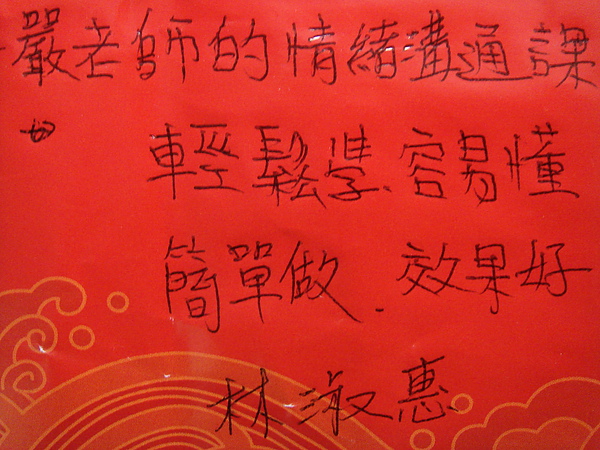 嚴老師的情緒溝通課
輕鬆學、容易懂
簡單做.效果好
林淑惠